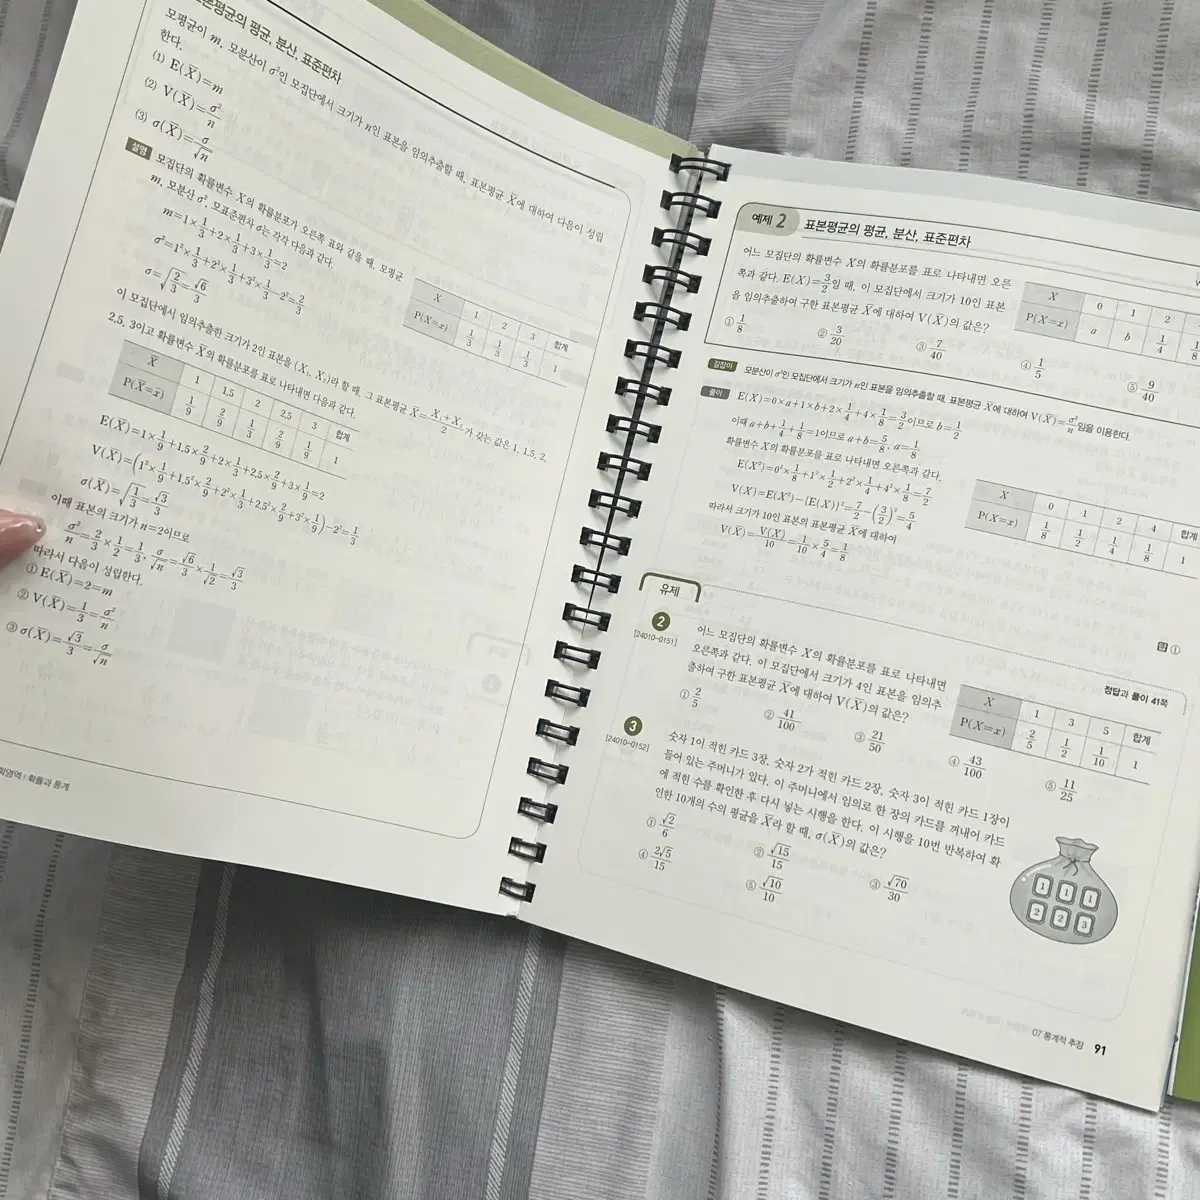 표본평균의 평균, 분산, 표준편차
모평균이 m, 모분산이 σ²인 모집단에서 크기가 n인 표본을 임의추출할 때, 표본평균 X̄에 대하여 다음이 성립
한다.
(1) E(X̄)=m
(2) V(X̄)=σ²/n
(3) σ(X̄)=σ/√n
설명 모집단의 확률변수 X의 확률분포가 오른쪽 표와 같을 때, 모평균
m, 모분산 σ², 모표준편차 σ는 각각 다음과 같다.
m=1×1/3+2×1/3+3×1/3=2
σ²=1²×1/3+2²×1/3+3²×1/3-2²=2/3
σ=√(2/3)=√6/3
X 1 2 3 합계
P(X=x) 1/3 1/3 1/3 1
이 모집단에서 임의추출한 크기가 2인 표본을 (X₁, X₂)라 할 때, 그 표본평균 X̄=(X₁+X₂)/2가 갖는 값은 1, 1.5, 2,
2.5, 3이고 확률변수 X̄의 확률분포를 표로 나타내면 다음과 같다.
X̄ 1 1.5 2 2.5 3 합계
P(X̄=x̄) 1/9 2/9 1/3 2/9 1/9 1
E(X̄)=1×1/9+1.5×2/9+2×1/3+2.5×2/9+3×1/9=2
V(X̄)=(1²×1/9+1.5²×2/9+2²×1/3+2.5²×2/9+3²×1/9)-2²=1/3
σ(X̄)=√(1/3)=√3/3
이때 표본의 크기가 n=2이므로
σ²/n=2/3×1/2=1/3, σ/√n=√6/3×1/√2=√3/3
따라서 다음이 성립한다.
① E(X̄)=2=m
② V(X̄)=1/3=σ²/n
③ σ(X̄)=√3/3=σ/√n
학영역 | 확률과 통계
예제 2 표본평균의 평균, 분산, 표준편차
어느 모집단의 확률변수 X의 확률분포를 표로 나타내면 오른
쪽과 같다. E(X)=3/2일 때, 이 모집단에서 크기가 10인 표본
을 임의추출하여 구한 표본평균 X̄에 대하여 V(X̄)의 값은?
X 0 1 2
P(X=x) a b 1/4 1/8
① 1/8 ② 3/20 ③ 7/40 ④ 1/5 ⑤ 9/40
길잡이 모분산이 σ²인 모집단에서 크기가 n인 표본을 임의추출할 때, 표본평균 X̄에 대하여 V(X̄)=σ²/n임을 이용한다.
풀이 E(X)=0×a+1×b+2×1/4+4×1/8=3/2이므로 b=1/2
이때 a+b+1/4+1/8=1이므로 a+b=5/8, a=1/8
확률변수 X의 확률분포를 표로 나타내면 오른쪽과 같다.
E(X²)=0²×1/8+1²×1/2+2²×1/4+4²×1/8=7/2
V(X)=E(X²)-{E(X)}²=7/2-(3/2)²=5/4
따라서 크기가 10인 표본의 표본평균 X̄에 대하여
V(X̄)=V(X)/10=1/10×5/4=1/8
X 0 1 2 4 합계
P(X=x) 1/8 1/2 1/4 1/8 1
답 ①
유제
정답과 풀이 41쪽
2
[24010-0151]
어느 모집단의 확률변수 X의 확률분포를 표로 나타내면
오른쪽과 같다. 이 모집단에서 크기가 4인 표본을 임의추
출하여 구한 표본평균 X̄에 대하여 V(X̄)의 값은?
X 1 3 5 합계
P(X=x) 2/5 1/2 1/10 1
① 2/5 ② 41/100 ③ 21/50 ④ 43/100 ⑤ 11/25
3
[24010-0152]
숫자 1이 적힌 카드 3장, 숫자 2가 적힌 카드 2장, 숫자 3이 적힌 카드 1장이
들어 있는 주머니가 있다. 이 주머니에서 임의로 한 장의 카드를 꺼내어 카드
에 적힌 수를 확인한 후 다시 넣는 시행을 한다. 이 시행을 10번 반복하여 확
인한 10개의 수의 평균을 X̄라 할 때, σ(X̄)의 값은?
① √2/6 ② √15/15 ③ √70/30
④ 2√5/15 ⑤ √10/10
1 1 1
2 2 3
07 통계적 추정 91